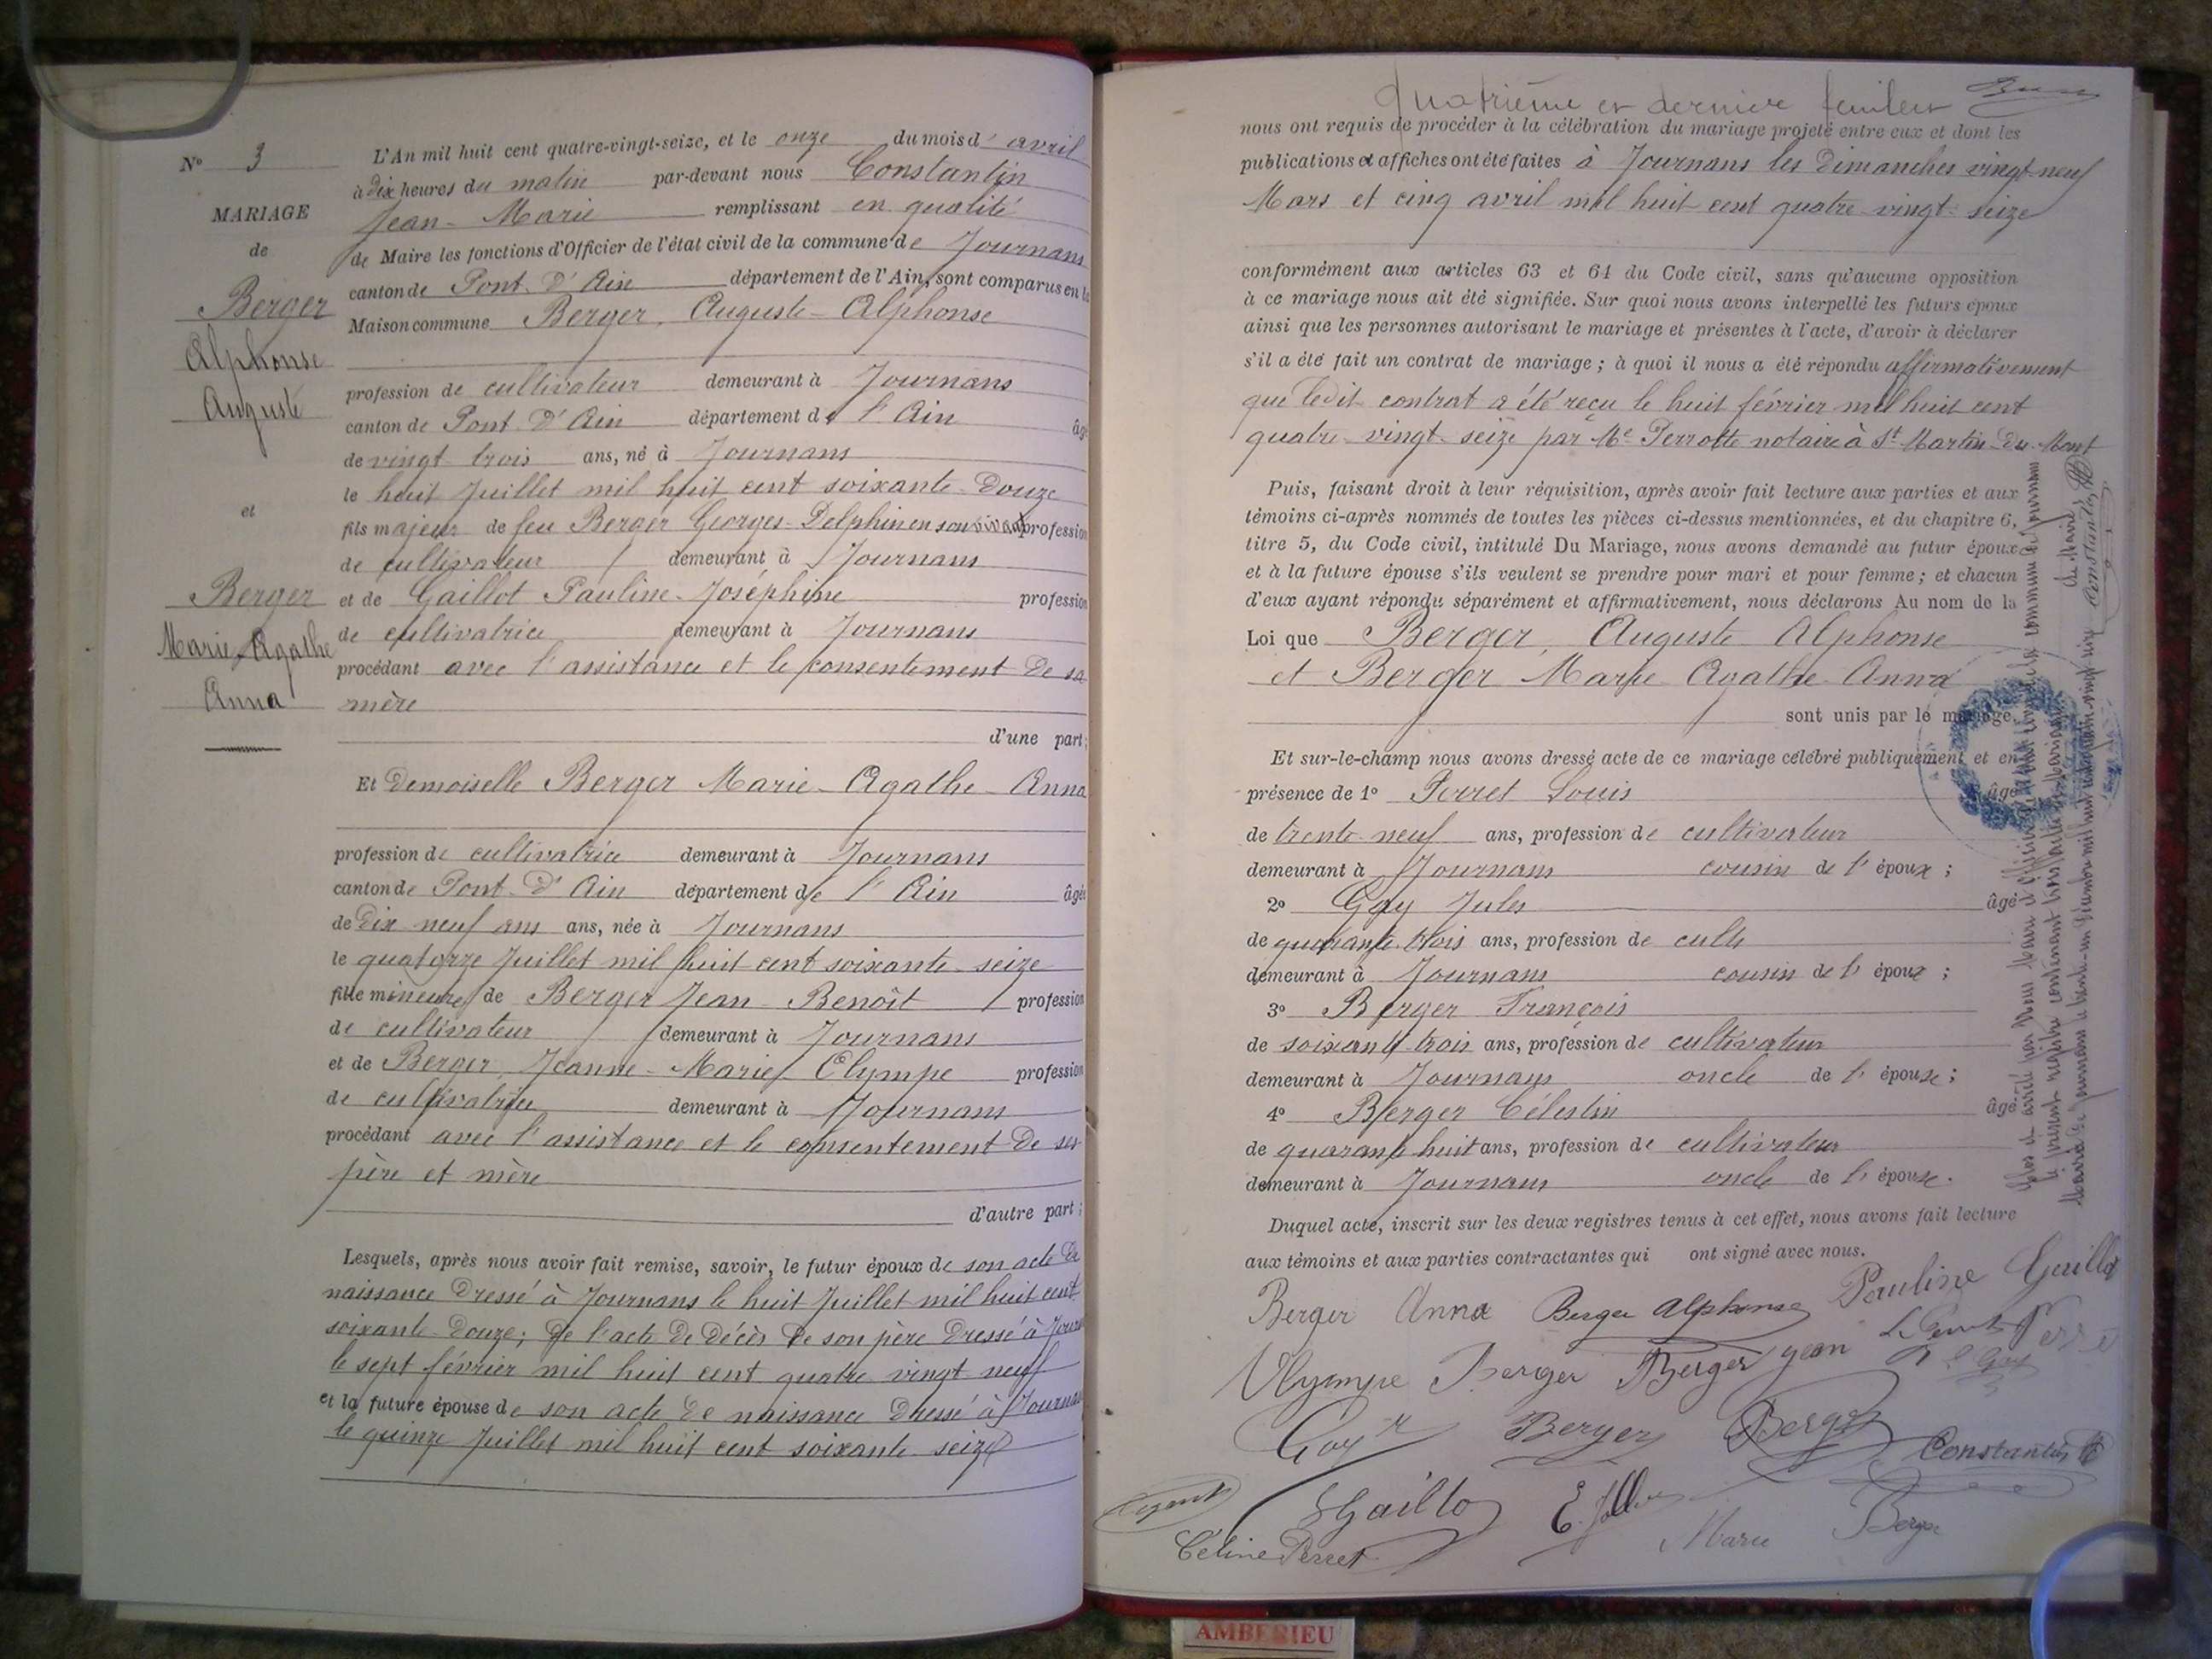 N° 3
MARIAGE
de
Berger
Alphonse
Auguste
et
Berger
Marie Agathe
Anna
L'An mil huit cent quatre-vingt-seize, et le onze du mois d'avril
à dix heures du matin par-devant nous Constantin
Jean-Marie remplissant en qualité
de Maire les fonctions d'Officier de l'état civil de la commune de Journans
canton de Pont d'Ain département de l'Ain, sont comparus en la
Maison commune Berger, Auguste-Alphonse
profession de cultivateur demeurant à Journans
canton de Pont d'Ain département de l'Ain âgé
de vingt trois ans, né à Journans
le huit Juillet mil huit cent soixante-douze
fils majeur de feu Berger Georges-Delphin en son vivant profession
de cultivateur demeurant à Journans
et de Gaillot Pauline-Joséphine profession
de cultivatrice demeurant à Journans
procédant avec l'assistance et le consentement de sa
mère
d'une part;
Et Demoiselle Berger Marie-Agathe-Anna
profession de cultivatrice demeurant à Journans
canton de Pont d'Ain département de l'Ain âgée
de dix neuf ans ans, née à Journans
le quatorze Juillet mil huit cent soixante-seize
fille mineure de Berger Jean-Benoît profession
de cultivateur demeurant à Journans
et de Berger Jeanne-Marie Olympe profession
de cultivatrice demeurant à Journans
procédant avec l'assistance et le consentement de ses
père et mère
d'autre part;
Lesquels, après nous avoir fait remise, savoir, le futur époux de son acte de
naissance dressé à Journans le huit Juillet mil huit cent
soixante-douze; de l'acte de décès de son père dressé à Journ
le sept février mil huit cent quatre vingt neuf
et la future épouse de son acte de naissance dressé à Journans
le quinze Juillet mil huit cent soixante seize
Quatrième et dernier feuillet
nous ont requis de procéder à la célébration du mariage projeté entre eux et dont les
publications et affiches ont été faites à Journans les Dimanches vingt-neuf
Mars et cinq avril mil huit cent quatre-vingt-seize
conformément aux articles 63 et 64 du Code civil, sans qu'aucune opposition
à ce mariage nous ait été signifiée. Sur quoi nous avons interpellé les futurs époux
ainsi que les personnes autorisant le mariage et présentes à l'acte, d'avoir à déclarer
s'il a été fait un contrat de mariage; à quoi il nous a été répondu affirmativement
que ledit contrat a été reçu le huit février mil huit cent
quatre-vingt-seize par Me Perrotte notaire à St Martin-du-Mont
Puis, faisant droit à leur réquisition, après avoir fait lecture aux parties et aux
témoins ci-après nommés de toutes les pièces ci-dessus mentionnées, et du chapitre 6,
titre 5, du Code civil, intitulé Du Mariage, nous avons demandé au futur époux
et à la future épouse s'ils veulent se prendre pour mari et pour femme; et chacun
d'eux ayant répondu séparément et affirmativement, nous déclarons Au nom de la
Loi que Berger, Auguste Alphonse
et Berger Marie Agathe Anna
sont unis par le mariage.
Et sur-le-champ nous avons dressé acte de ce mariage célébré publiquement et en
présence de 1° Perret Louis âgé
de trente-neuf ans, profession de cultivateur
demeurant à Journans cousin de l'époux;
2° Gay Jules âgé
de quarante trois ans, profession de cult
demeurant à Journans cousin de l'époux;
3° Berger François
de soixante trois ans, profession de cultivateur
demeurant à Journans oncle de l'épouse;
4° Berger Célestin âgé
de quarante huit ans, profession de cultivateur
demeurant à Journans oncle de l'épouse.
Duquel acte, inscrit sur les deux registres tenus à cet effet, nous avons fait lecture
aux témoins et aux parties contractantes qui ont signé avec nous.
Berger Anna Berger Alphonse Pauline Gaillot
Olympe Berger Berger Jean
Gay Berger Berger Constantin
Gaillot
Céline Perret Marie Berger
Clos et arrêté par nous Maire et Officier de l'état civil de la commune de Journans
le présent registre contenant trois actes de Mariage
Mairie de Journans le trente-un Décembre mil huit cent quatre-vingt-seize
Le Maire
Constantin
AMBERIEU